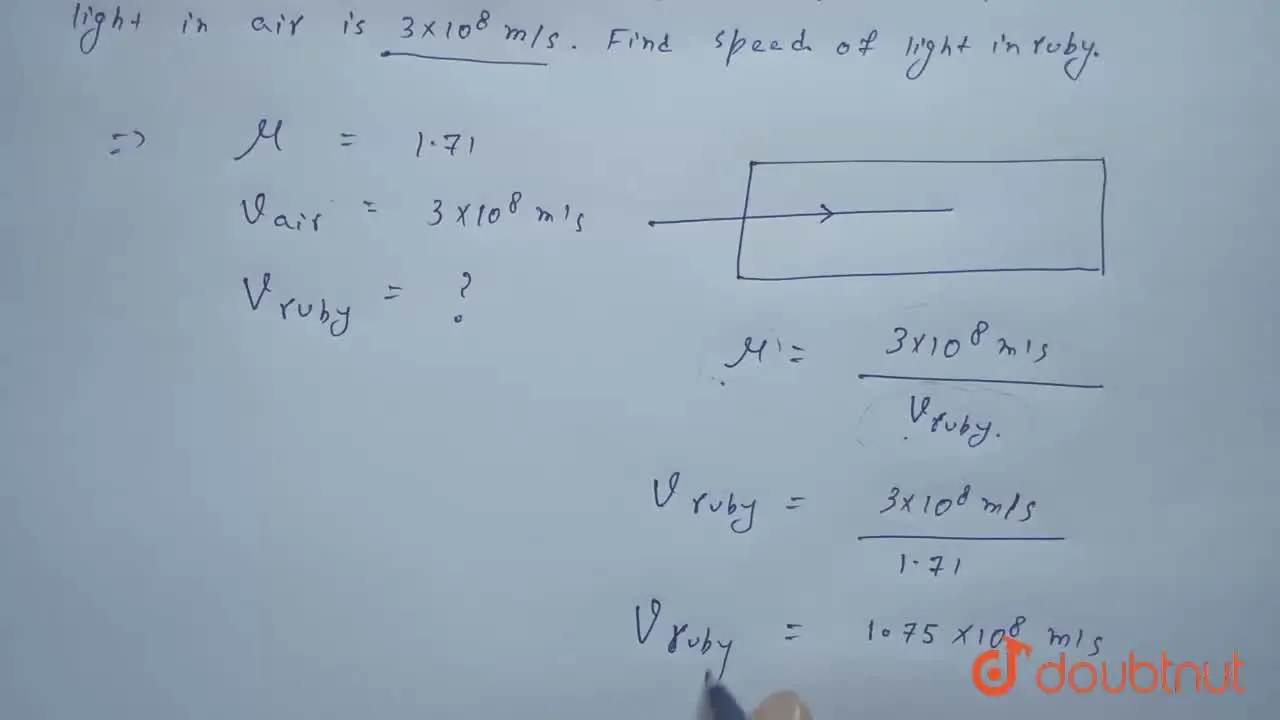 light in air is 3×10⁸ m/s. Find speed of light in ruby.
=> μ = 1.71
v air = 3×10⁸ m/s
V ruby = ?
μ = 3×10⁸ m/s
V ruby.
V ruby = 3×10⁸ m/s
1.71
V ruby = 1.75 ×10⁸ m/s
doubtnut